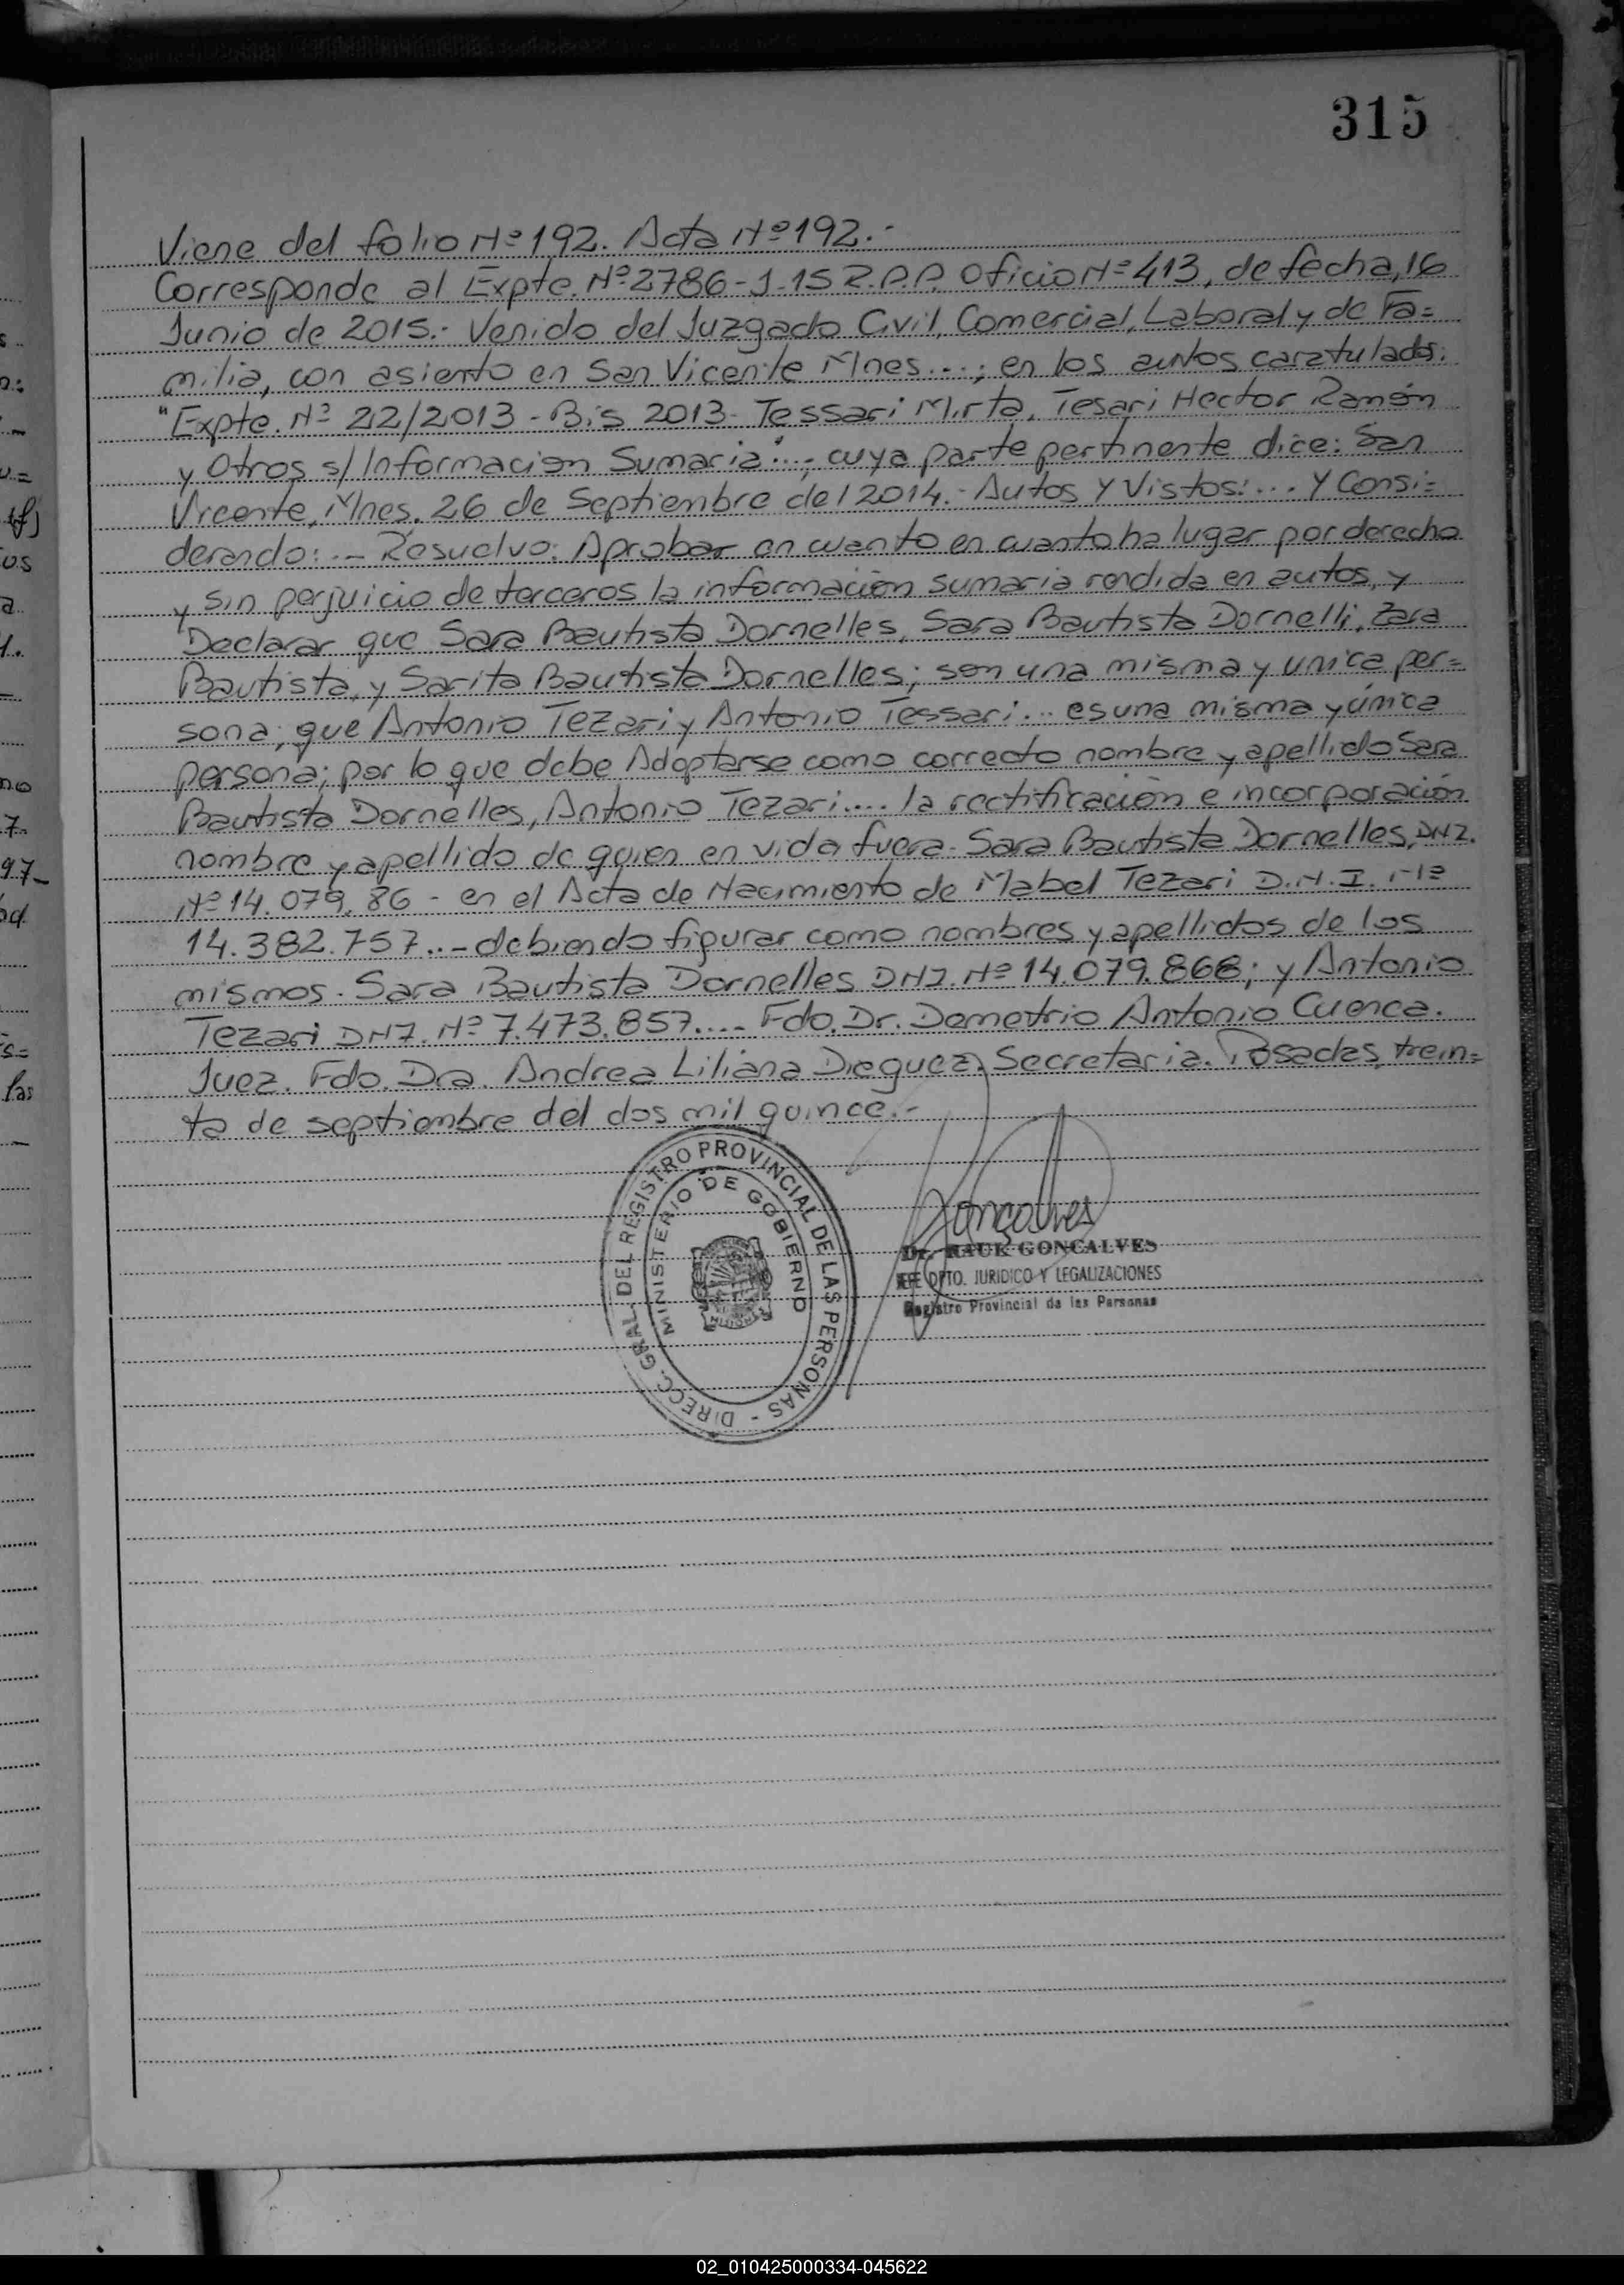 315
Viene del folio Nº 192. Acta Nº 192.-
Corresponde al Expte. Nº 2786-J-15 R.P.P. Oficio Nº 413, de fecha, 16
Junio de 2015.- Venido del Juzgado Civil, Comercial, Laboral y de Fa=
milia, con asiento en San Vicente Mnes...; en los autos caratulados:
"Expte. Nº 22/2013 - Bis 2013- Tessari Mirta, Tesari Hector Ramón
y Otros s/ Informacion Sumaria"..., cuya parte pertinente dice: San
Vicente, Mnes. 26 de Septiembre del 2014.- Autos Y Vistos:... Y Consi=
derando: ... Resuelvo: Aprobar en cuanto en cuanto ha lugar por derecho
y sin perjuicio de terceros la información sumaria rendida en autos, y
Declarar que Sara Bautista Dornelles, Sara Bautista Dornelli, Zara
Bautista, y Sarita Bautista Dornelles; son una misma y unica per=
sona; que Antonio Tezari y Antonio Tessari... es una misma y única
persona; por lo que debe Adoptarse como correcto nombre y apellido Sara
Bautista Dornelles, Antonio Tezari.... la rectificación e incorporación
nombre y apellido de quien en vida fuera- Sara Bautista Dornelles, DNI.
Nº 14.079.86 - en el Acta de Nacimiento de Mabel Tezari D.N.I. Nº
14.382.757..- debiendo figurar como nombres y apellidos de los
mismos- Sara Bautista Dornelles DNI. Nº 14.079.868; y Antonio
Tezari DNI. Nº 7.473.857.... Fdo. Dr. Demetrio Antonio Cuenca.
Juez. Fdo. Dra. Andrea Liliana Dieguez. Secretaria. Posadas, trein=
ta de septiembre del dos mil quince.-
DIRECC. GRAL. DEL REGISTRO PROVINCIAL DE LAS PERSONAS -
MINISTERIO DE GOBIERNO
MISIONES
Goncalves
Dr. RAUL GONCALVES
JEFE DPTO. JURIDICO Y LEGALIZACIONES
Registro Provincial de las Personas
02_010425000334-045622